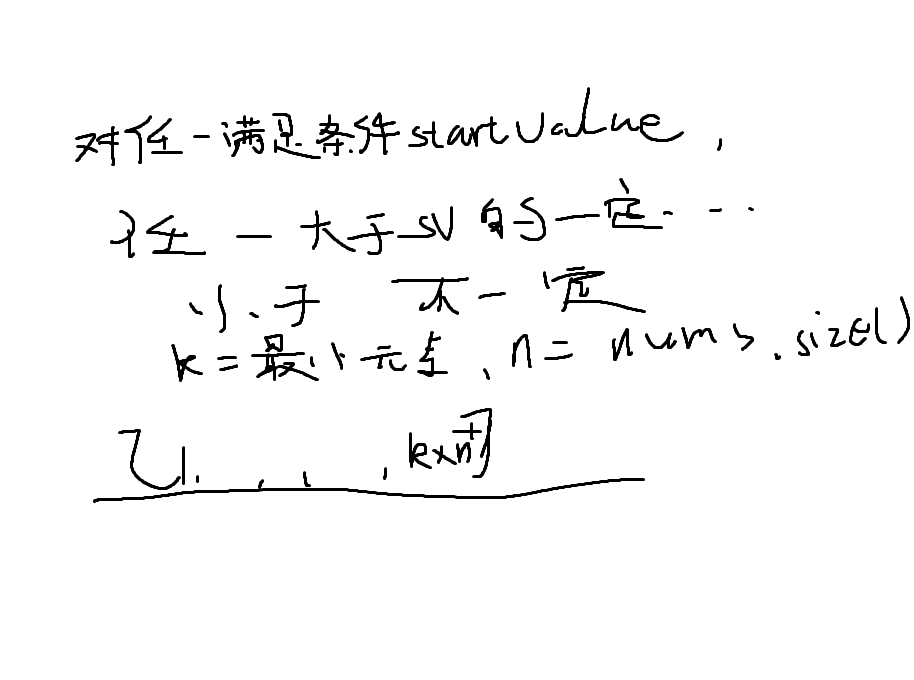 对任一满足条件startValue,
任一大于SV的一定...
小于 不一定
k=最小元素,n=nums.size()
[1, , , ,k×n+1]